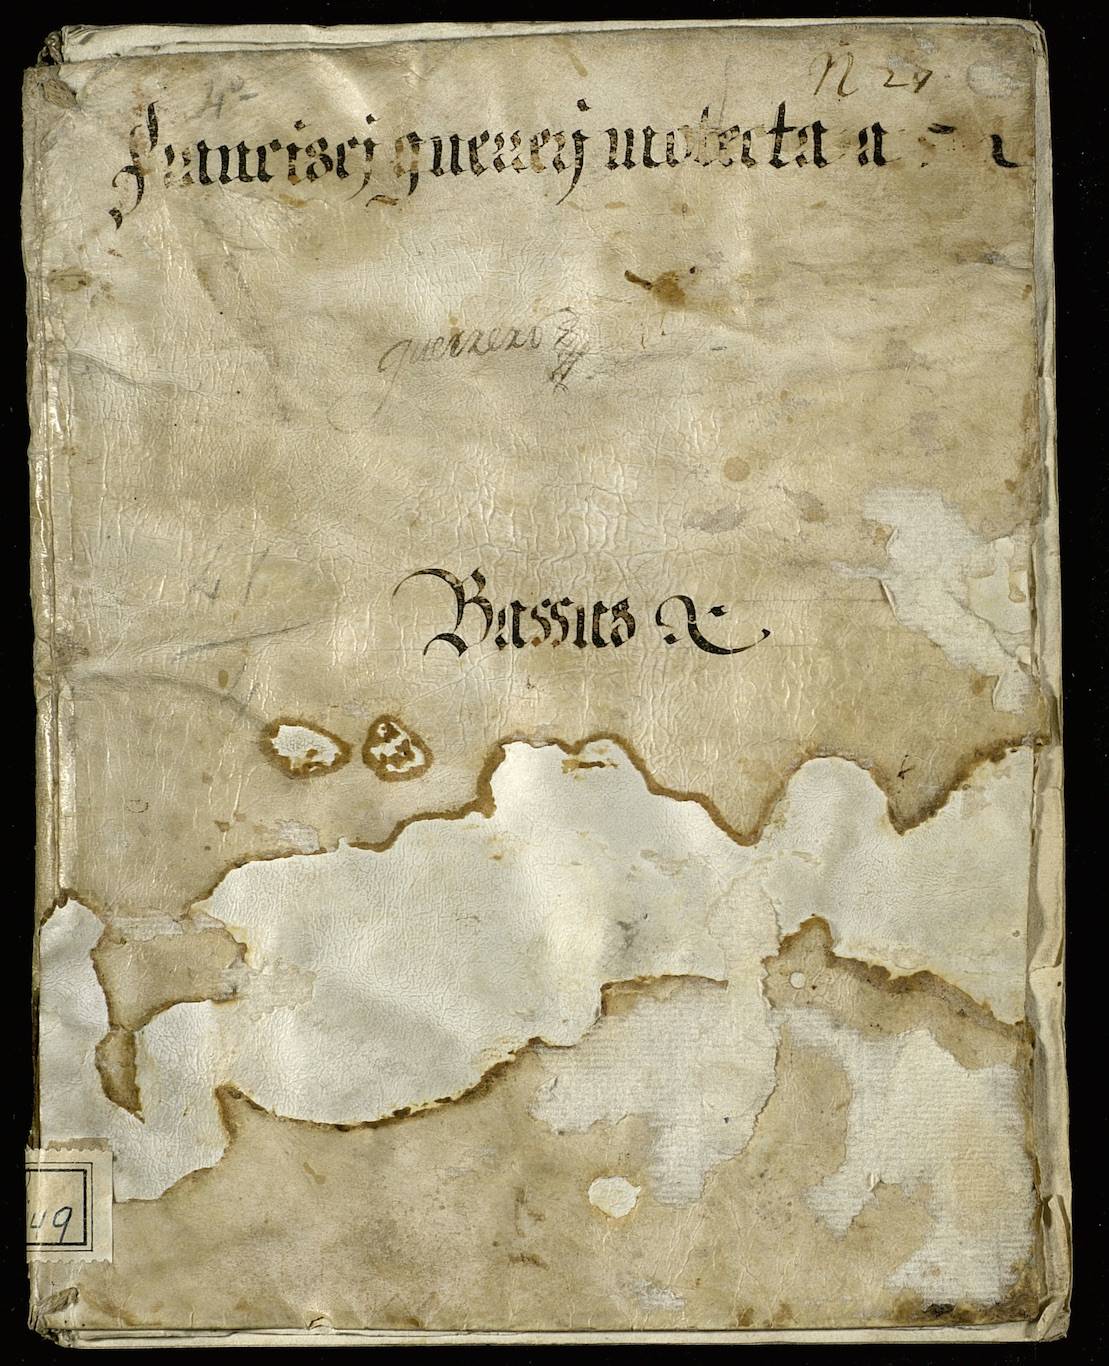 N 27
Francisci guerreri motecta a
guerrero
Bassus &
49